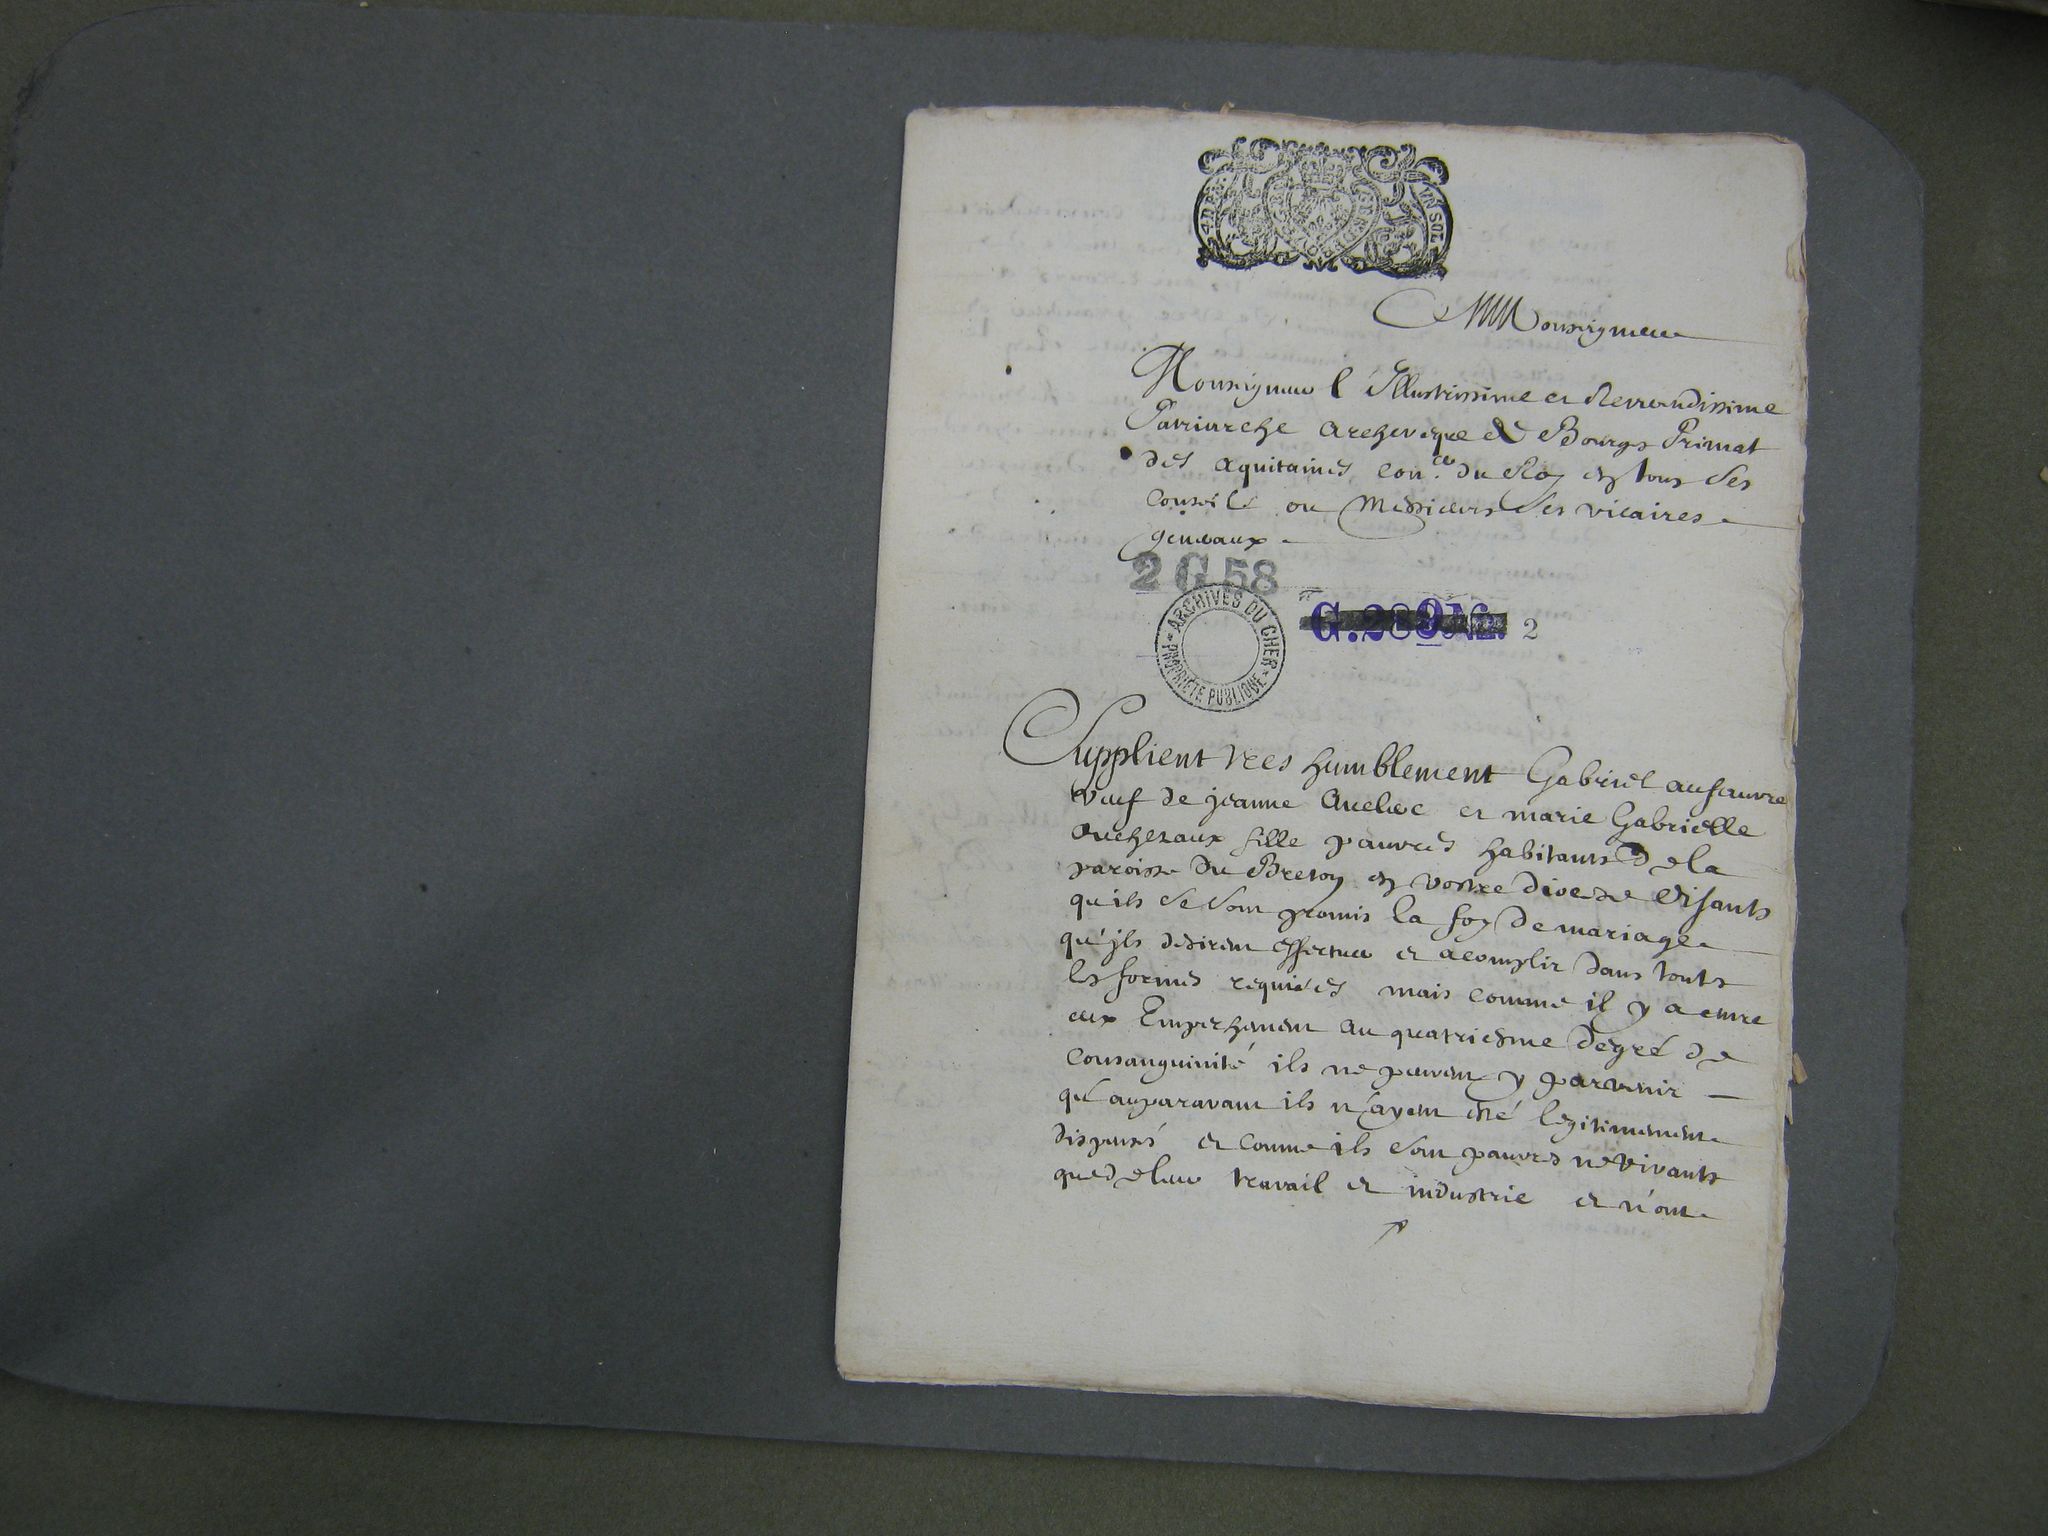 VN SOL
Monseigneur
Monsigneur l'Illustrissime et Reverendissime
Patriarche archeveque de Bourges Primat
des aquitaines con.er du Roy en tous ses
conseils ou Messieurs ses vicaires
generaux
2 G 58
ARCHIVES DU CHER
PROPRIETE PUBLIQUE
G. 289 2
Supplient tres humblement Gabriel aufauvre
veuf de jeanne et marie Gabrielle
fille pauvres habitants de la
paroisse du Brethon en vostre diocese disants
qu'ils se sont promis la foy de mariage
qu'jls desirent effectuer et acomplir dans touts
les formes requises mais comme il y a entre
eux Empechement au quatriesme degré de
consanguinité ils ne peuvent y parvenir
qu'auparavant ils n'ayent été legitimement
dispensés et comme ils sont pauvres ne vivants
que de leur travail et industrie et n'ont